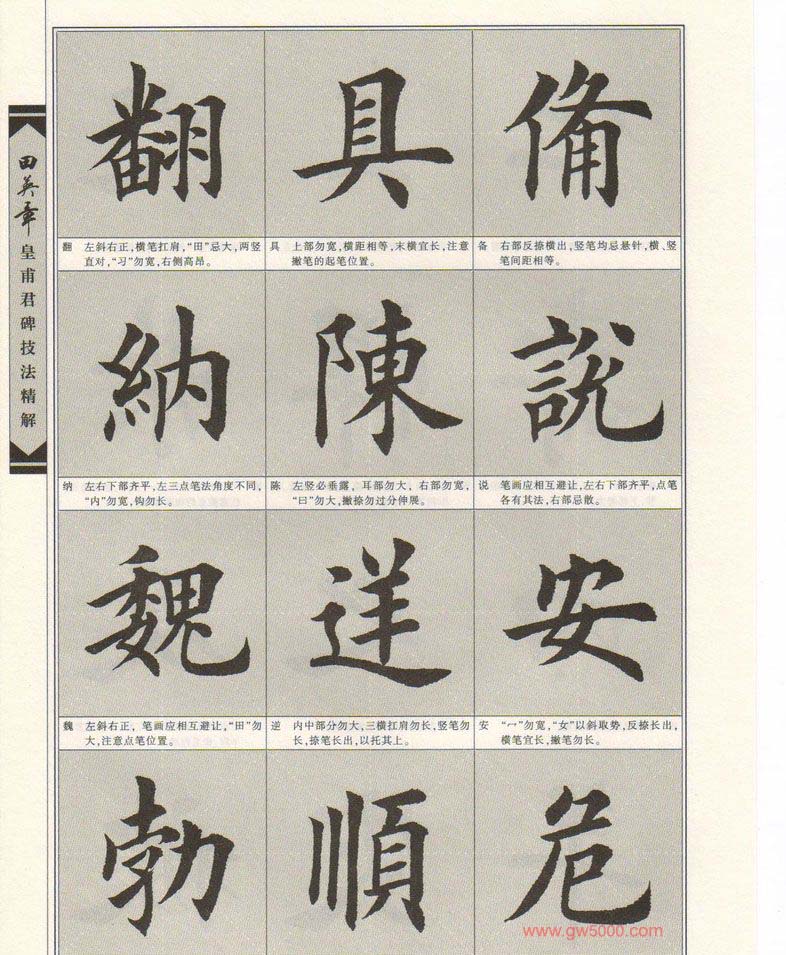 田英章皇甫君碑技法精解
翻
具
俻
翻 左斜右正，横笔扛肩，“田”忌大，两竖
直对，“习”勿宽，右侧高昂。
具 上部勿宽，横距相等，末横宜长，注意
撇笔的起笔位置。
备 右部反捺横出，竖笔均忌悬针，横、竖
笔间距相等。
納
陳
説
纳 左右下部齐平，左三点笔法角度不同，
“内”勿宽，钩勿长。
陈 左竖必垂露，耳部勿大，右部勿宽，
“曰”勿大，撇捺勿过分伸展。
说 笔画应相互避让，左右下部齐平，点笔
各有其法，右部忌散。
魏
逆
安
魏 左斜右正，笔画应相互避让，“田”勿
大，注意点笔位置。
逆 内中部分勿大，三横扛肩勿长，竖笔勿
长，捺笔长出，以托其上。
安 “宀”勿宽，“女”以斜取势，反捺长出，
横笔宜长，撇笔勿长。
勃
順
危
www.gw5000.com